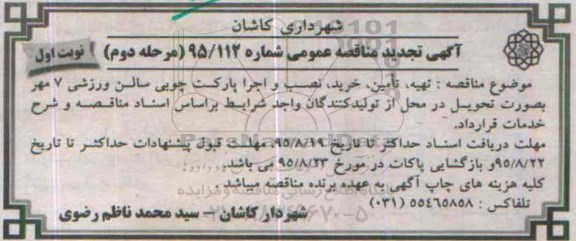 شهرداری کاشان
آگهی تجدید مناقصه عمومی شماره ۹۵/۱۱۲ (مرحله دوم)
نوبت اول
موضوع مناقصه : تهیه، تأمین، خرید، نصب و اجرا پارکت چوبی سالن ورزشی ۷ مهر
بصورت تحویل در محل از تولیدکنندگان واجد شرایط براساس اسناد مناقصه و شرح
خدمات قرارداد.
مهلت دریافت اسناد حداکثر تا تاریخ ۹۵/۸/۱۹، مهلت قبول پیشنهادات حداکثر تا تاریخ
۹۵/۸/۲۲ و بازگشایی پاکات در مورخ ۹۵/۸/۲۳ می باشد.
کلیه هزینه های چاپ آگهی به عهده برنده مناقصه میباشد
تلفاکس : ۵۵۴۶۵۸۵۸ (۰۳۱)
شهردار کاشان – سید محمد ناظم رضوی